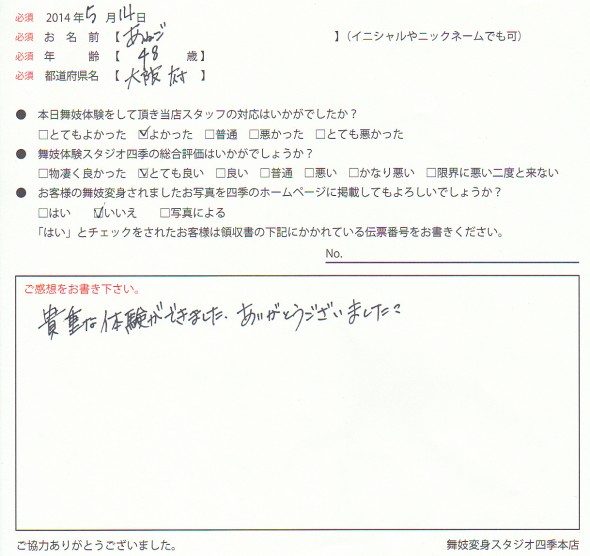 必須 2014年5月14日
必須 お名前【あねご 】(イニシャルやニックネームでも可)
必須 年齢【 48 歳】
必須 都道府県名【大阪府】
● 本日舞妓体験をして頂き当店スタッフの対応はいかがでしたか?
□とてもよかった ☑よかった □普通 □悪かった □とても悪かった
● 舞妓体験スタジオ四季の総合評価はいかがでしょうか?
□物凄く良かった ☑とても良い □良い □普通 □悪い □かなり悪い □限界に悪い二度と来ない
● お客様の舞妓変身されましたお写真を四季のホームページに掲載してもよろしいでしょうか?
□はい ☑いいえ □写真による
「はい」とチェックをされたお客様は領収書の下記にかかれている伝票番号をお書きください。
No.
ご感想をお書き下さい。
貴重な体験ができました。ありがとうございました。
ご協力ありがとうございました。 舞妓変身スタジオ四季本店